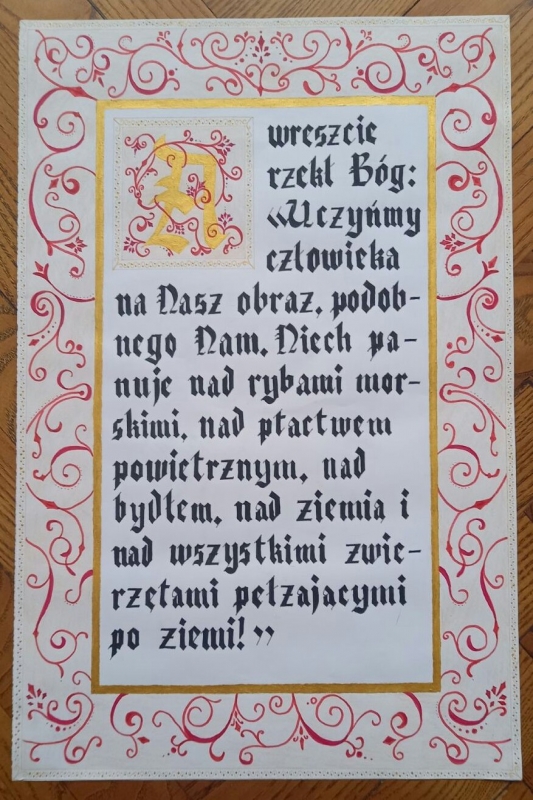 A wreszcie
rzekł Bóg:
«Uczyńmy
człowieka
na Nasz obraz, podob-
nego Nam. Niech pa-
nuje nad rybami mor-
skimi, nad ptactwem
powietrznym, nad
bydłem, nad ziemia i
nad wszystkimi zwie-
rzętami pełzajacymi
po ziemi!»